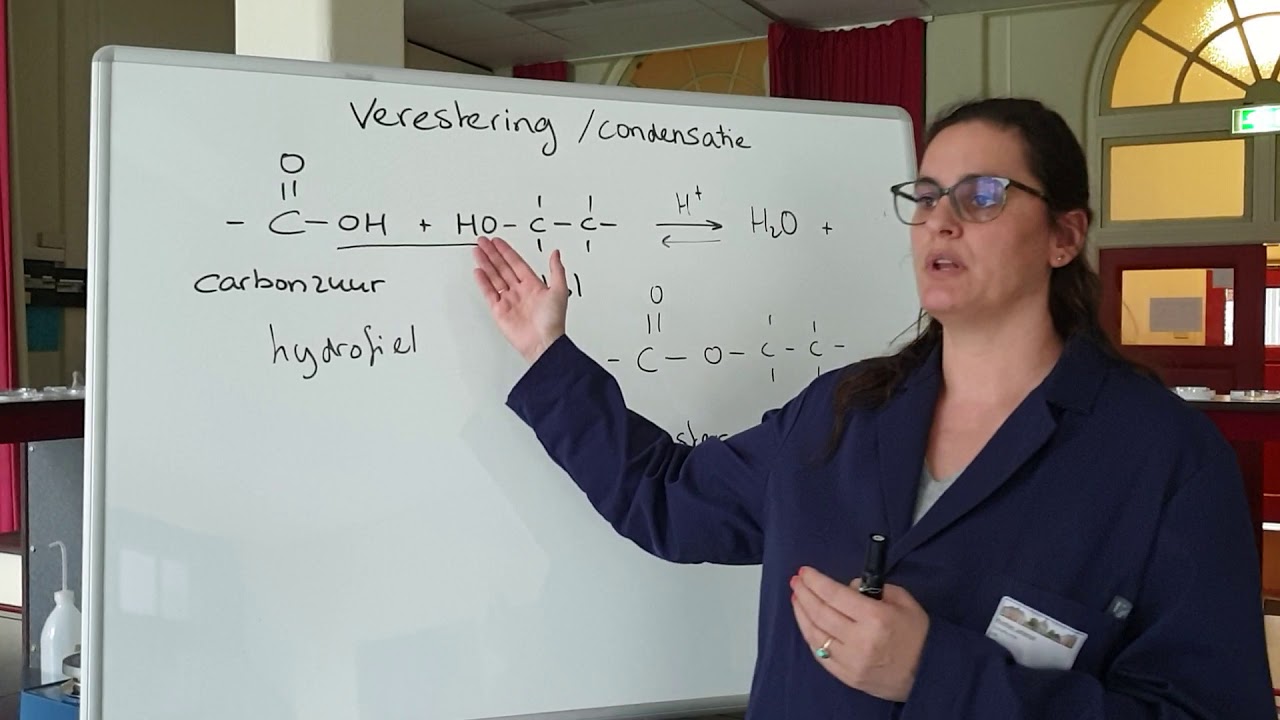 Verestering /condensatie
O
||
- C - OH + HO - C - C - ⇌ H⁺ H₂O +
carbonzuur
hydrofiel
O
||
- C - O - C - C -